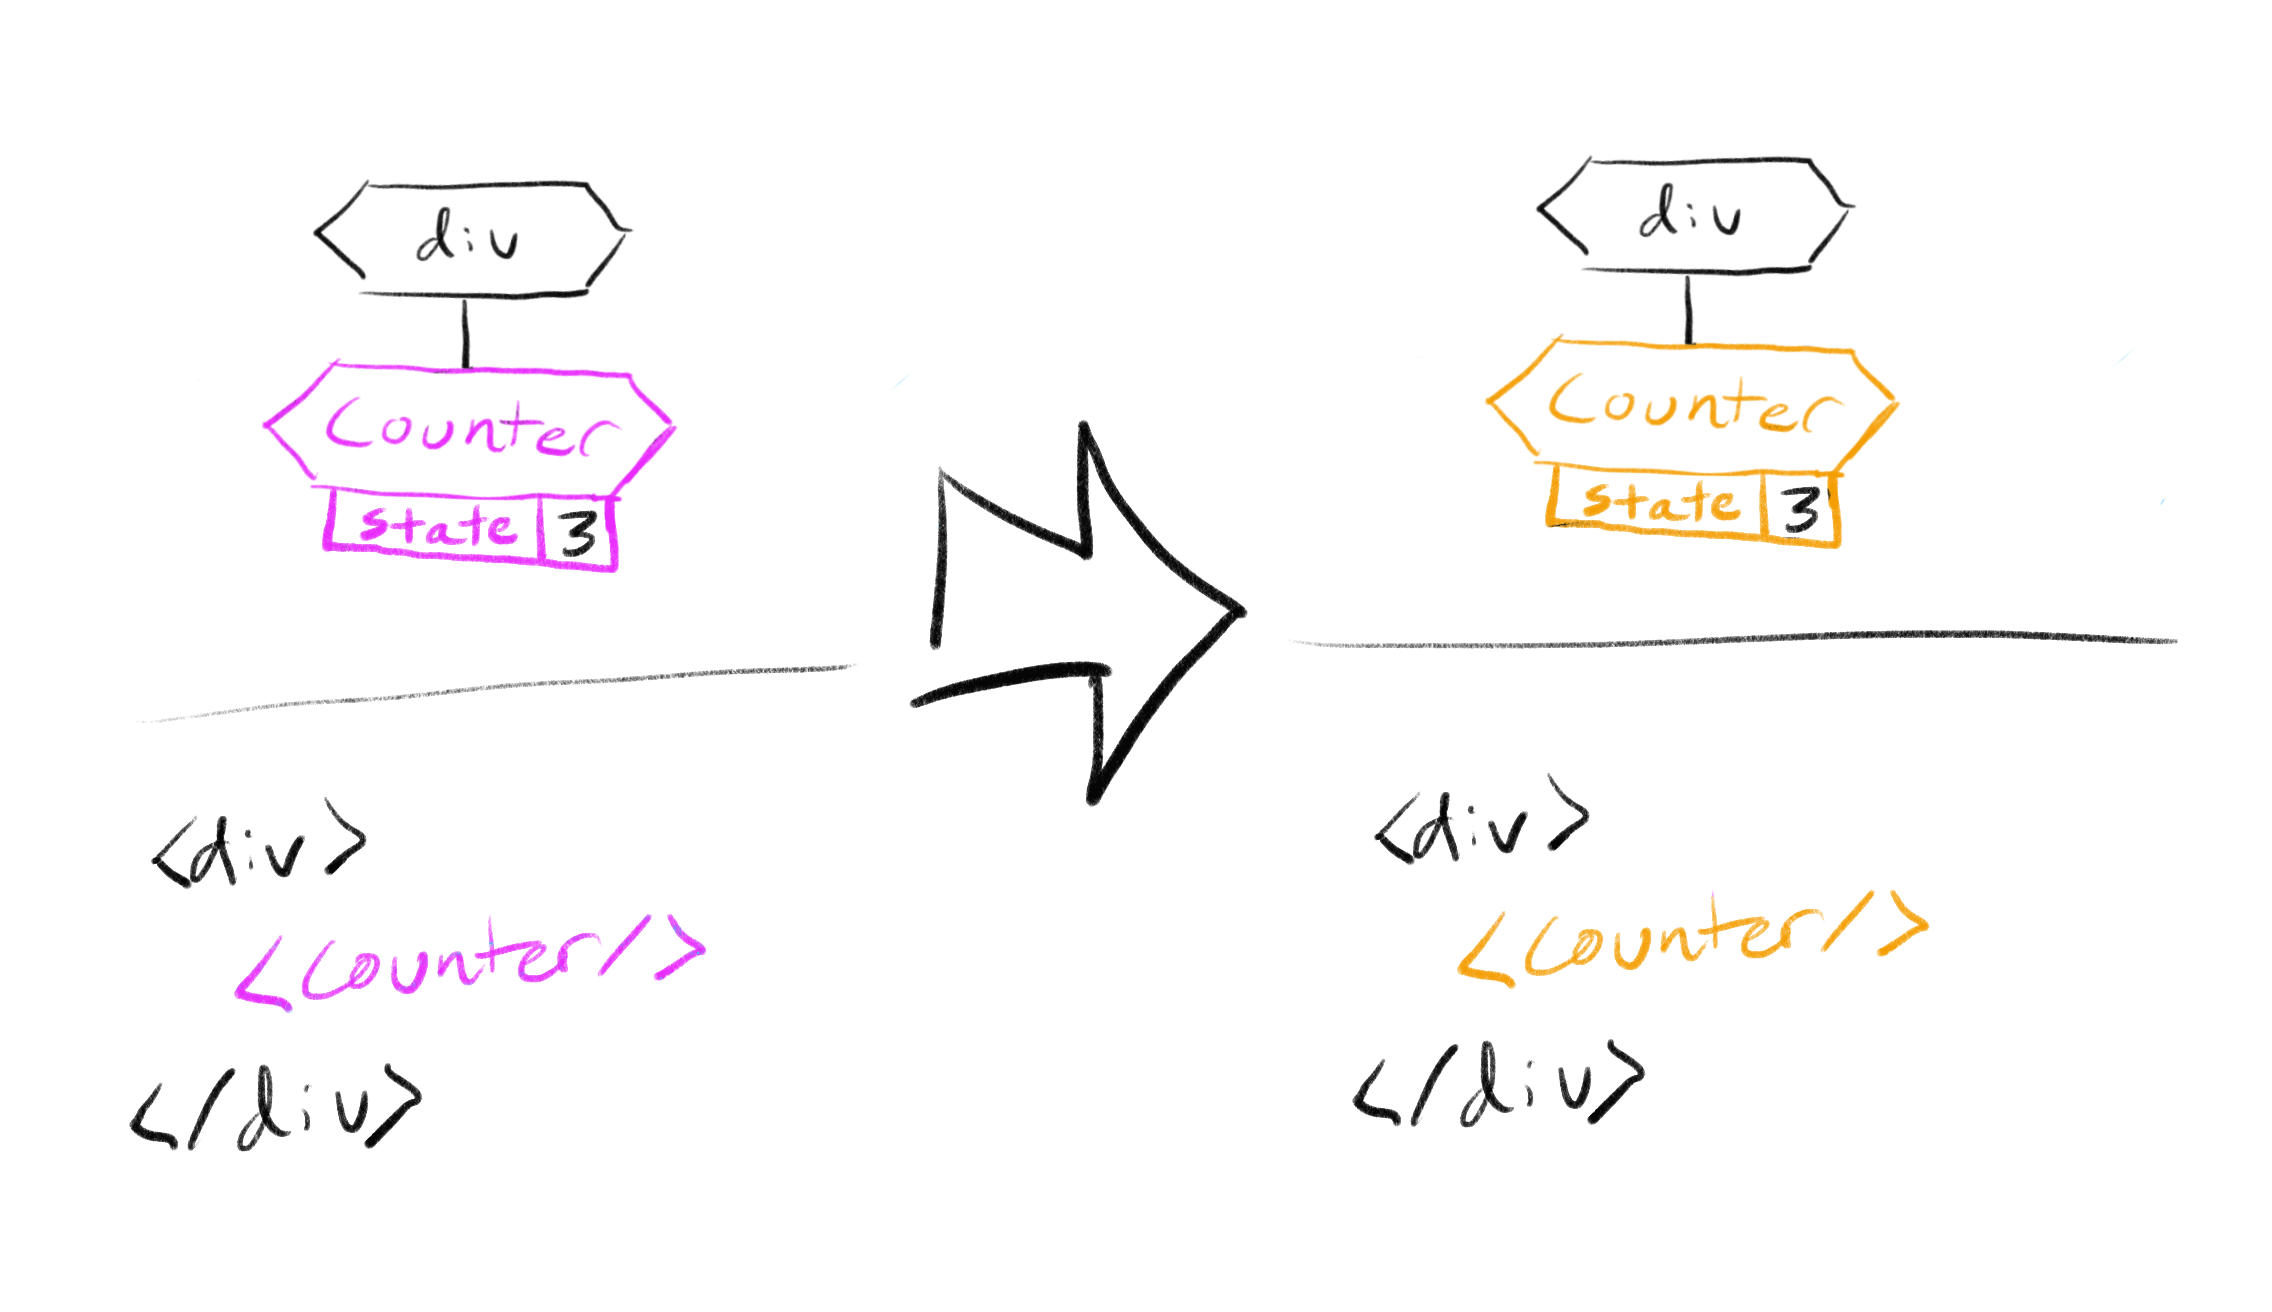 div
Counter
state 3
<div>
<Counter/>
</div>
div
Counter
state 3
<div>
<Counter/>
</div>